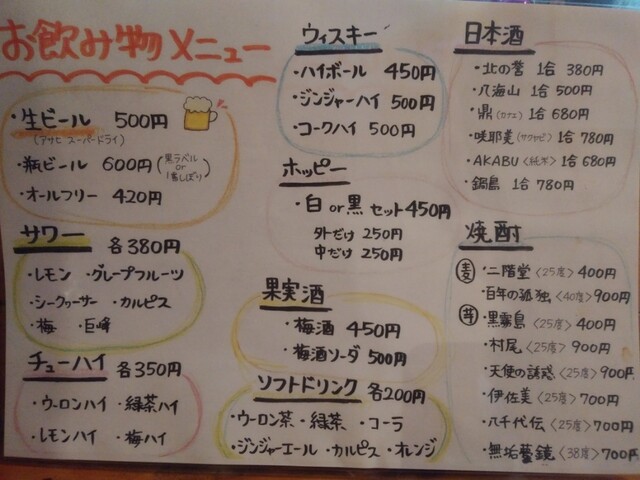 お飲み物メニュー
・生ビール 500円
(アサヒ スーパードライ)
・瓶ビール 600円(黒ラベル or 1番しぼり)
・オールフリー 420円
サワー 各380円
・レモン ・グレープフルーツ
・シークゥーサー ・カルピス
・梅 ・巨峰
チューハイ 各350円
・ウーロンハイ ・緑茶ハイ
・レモンハイ ・梅ハイ
ウィスキー
・ハイボール 450円
・ジンジャーハイ 500円
・コークハイ 500円
ホッピー
・白or黒 セット450円
外だけ 250円
中だけ 250円
果実酒
・梅酒 450円
・梅酒ソーダ 500円
ソフトドリンク 各200円
・ウーロン茶 ・緑茶 ・コーラ
・ジンジャーエール ・カルピス ・オレンジ
日本酒
・北の誉 1合 380円
・八海山 1合 500円
・鼎(カナエ) 1合 680円
・咲耶美(サクヤビ) 1合 780円
・AKABU〈純米〉1合 680円
・鍋島 1合 780円
焼酎
麦 ・二階堂〈25度〉400円
・百年の孤独〈40度〉900円
芋 ・黒霧島〈25度〉400円
・村尾〈25度〉900円
・天使の誘惑〈25度〉900円
・伊佐美〈25度〉700円
・八千代伝〈25度〉700円
・無垢藝鏡〈38度〉700円